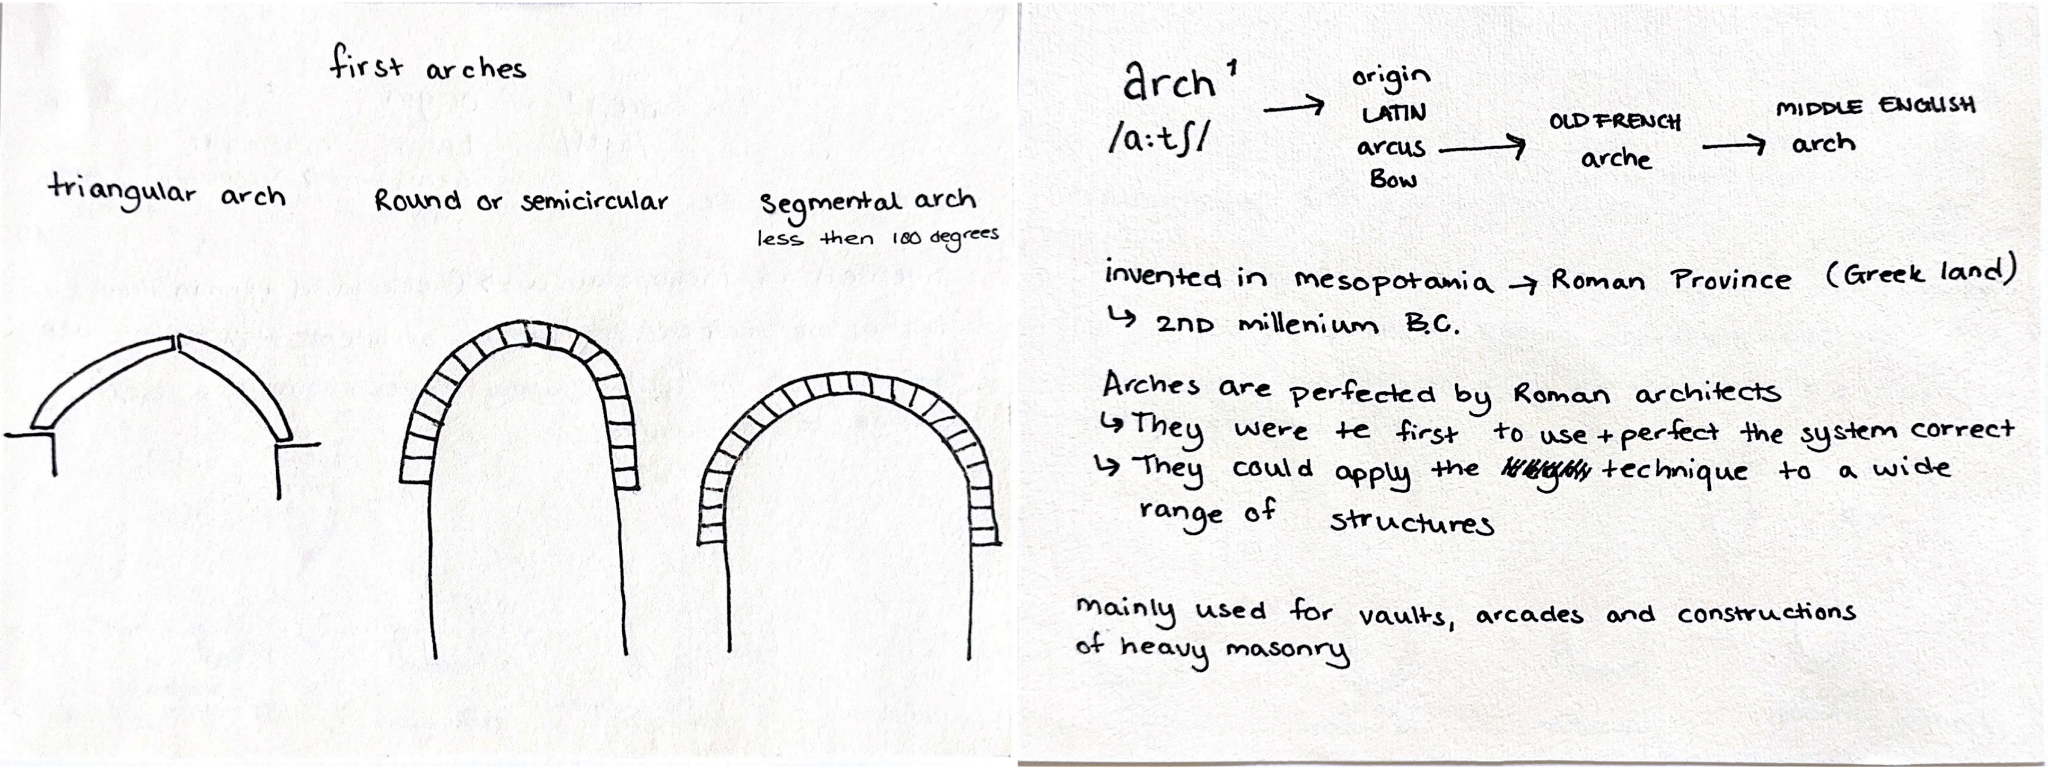 first arches
triangular arch
Round or semicircular
Segmental arch
less then 180 degrees
arch 1
/a:tʃ/
origin
LATIN
arcus
Bow
OLD FRENCH
arche
MIDDLE ENGLISH
arch
invented in mesopotamia → Roman Province (Greek land)
↳ 2ND millenium B.C.
Arches are perfected by Roman architects
↳ They were te first to use + perfect the system correct
↳ They could apply the technique to a wide
range of structures
mainly used for vaults, arcades and constructions
of heavy masonry